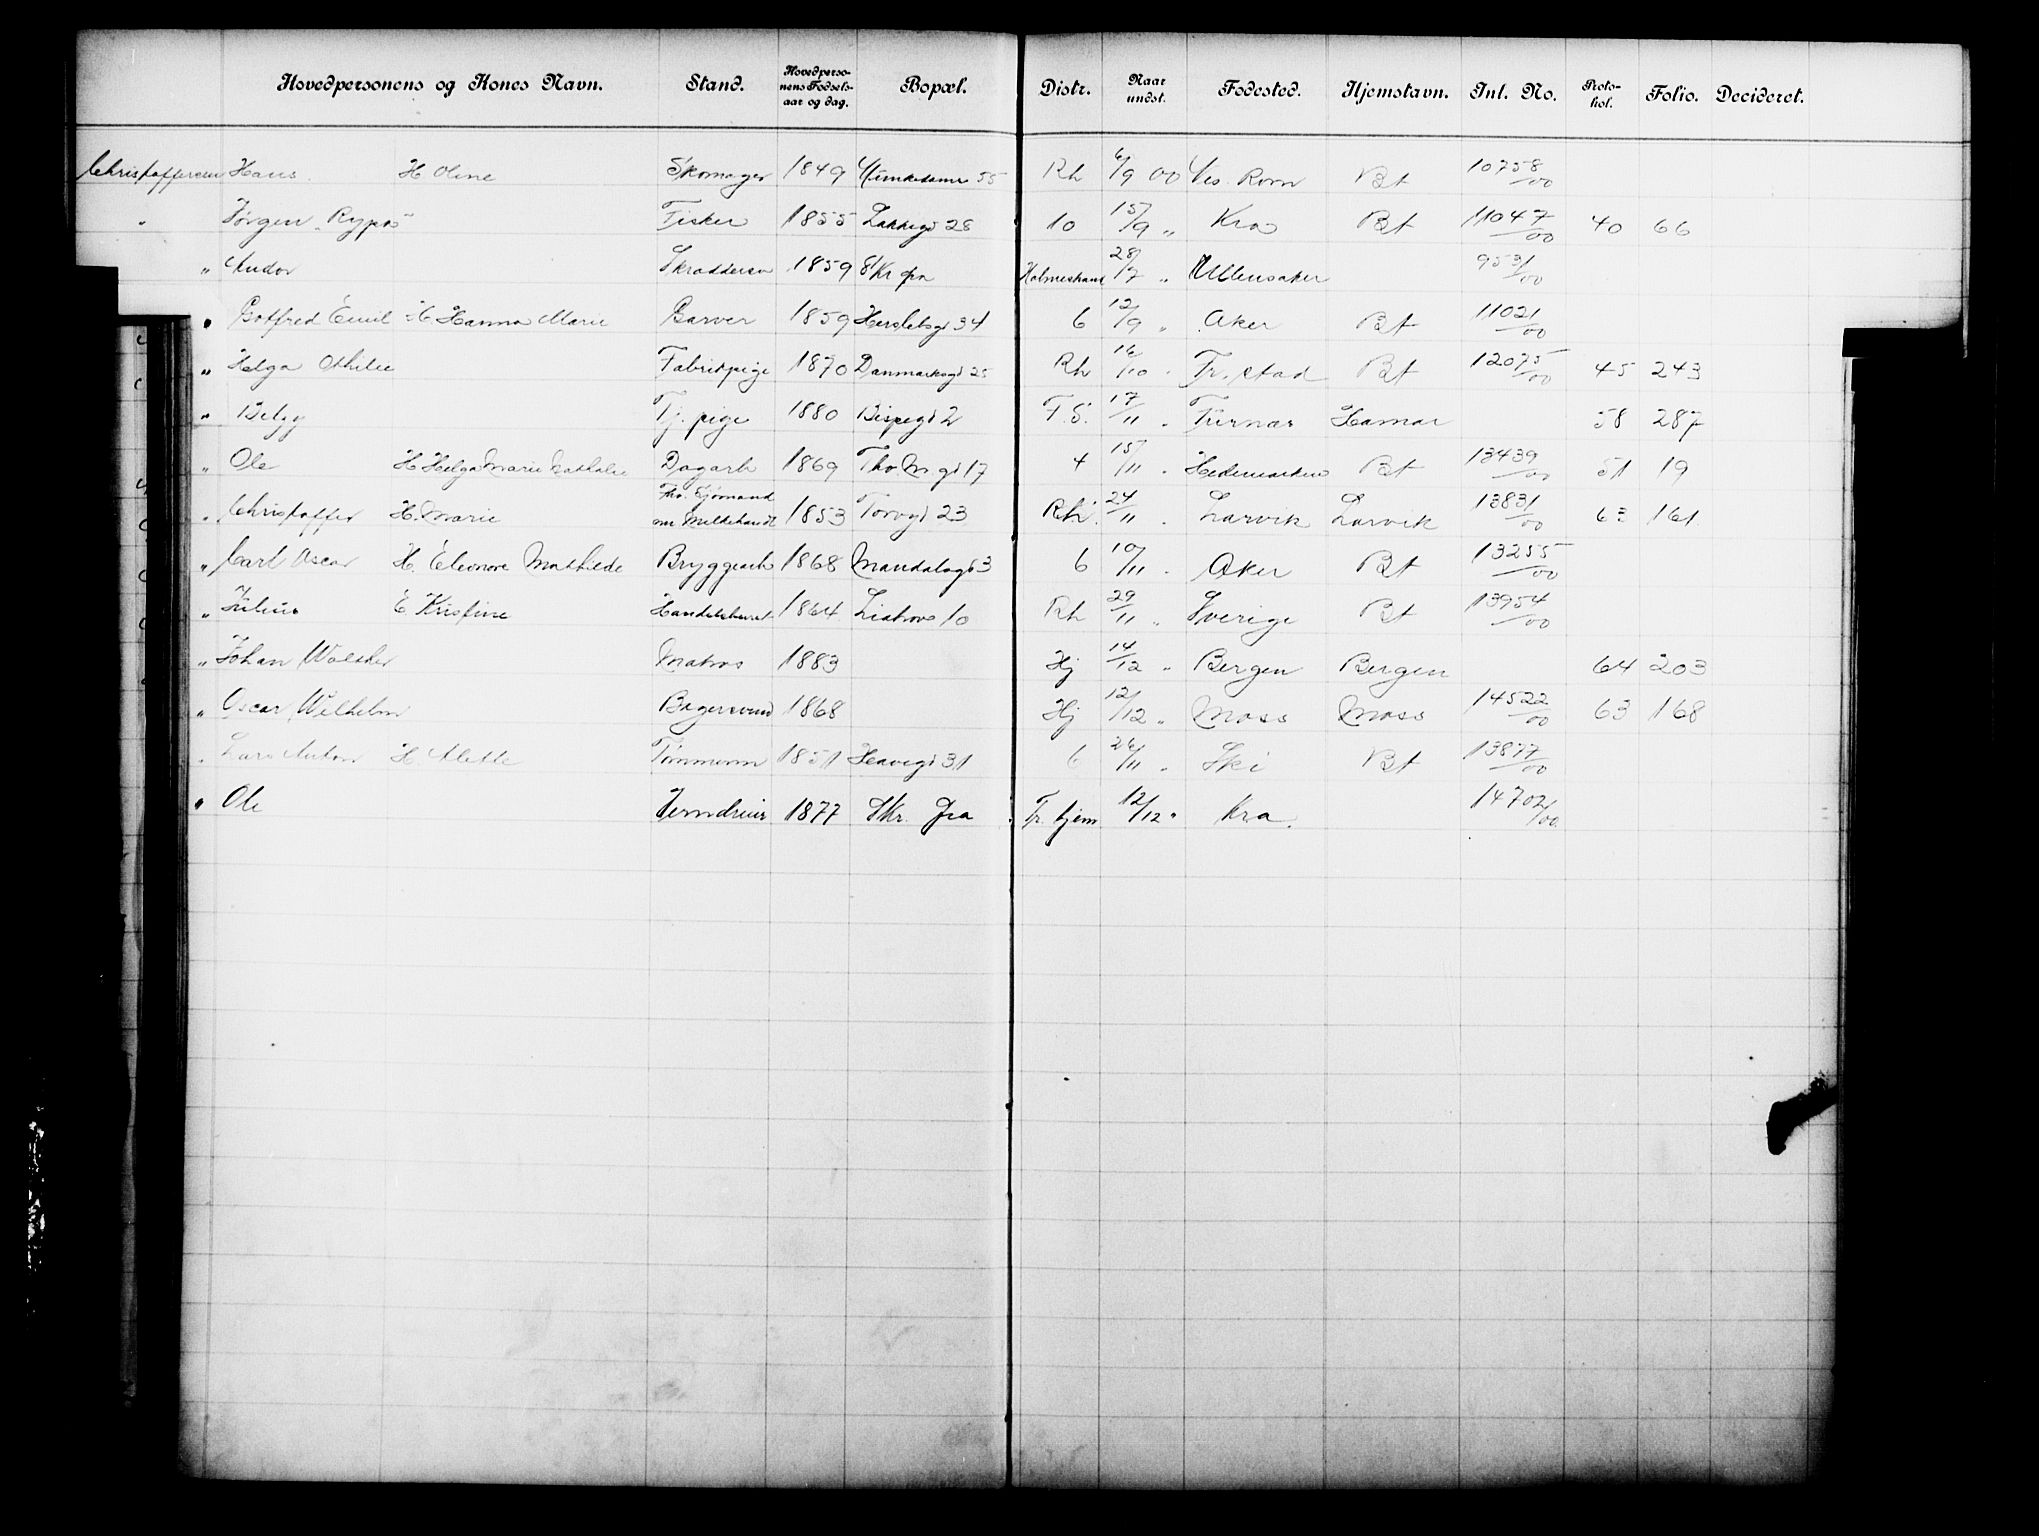 Hovedpersonens og Kones Navn. Stand. Hovedperso-nens Fødsels-aar og dag. Bopæl. Distr. Naar undst. Fødested. Hjemstavn. Inl. No. Proto-kol. Folio. Decideret.
Christoffersen Hans. H Oline Skomager 1849 55 Rh 6/9 00 Bt 10758/00
" Jørgen Fisker 1855 Lakkegd 28 10 15/9 " Kra Bt 11047/00 40 66
" Andor 1859 Skr fra Holmestrand 28/7 " Ullensaker 9531/00
" Gotfred Emil H Hanna Marie Garver 1859 Herslebsgd 34 6 12/9 " Aker Bt 11021/00
" Helga Othilie Fabrikpige 1870 Danmarksgd 25 Rh 16/10 " Fr.stad Bt 12075/00 45 243
" Betzy Tj. pige 1880 Bispegd 2 F.S. 17/11 " Furnæs Hamar 58 287
" Ole H Helga Marie Nathalie Dagarb 1869 Tho. M. gd 17 4 15/11 " Hedemarken Bt 13439/00 51 19
" Christoffer H. Marie fho. Sjømand nu Melkehandl 1853 Torvgd 23 Rh. 24/11 " Larvik Larvik 13831/00 63 161
" Carl Oscar H. Eleonore Mathilde Bryggearb 1868 Mandalsgd 3 6 10/11 " Aker Bt 13255/00
" Julius E Kristine 1864 10 Rh 29/11 " Sverige Bt 13954/00
" Johan Walther Matros 1883 Hj 14/12 " Bergen Bergen 64 203
" Oscar Wilhelm Bagersvend 1868 Hj 12/12 " Moss Moss 14522/00 63 168
" Lars Anton H. Alette Tømmerm 1851 Heavegd 31 6 26/11 " Ski Bt 13877/00
" Ole Jerndreier 1877 Skr. fra Tr.hjem 12/12 " Kra. 14702/00